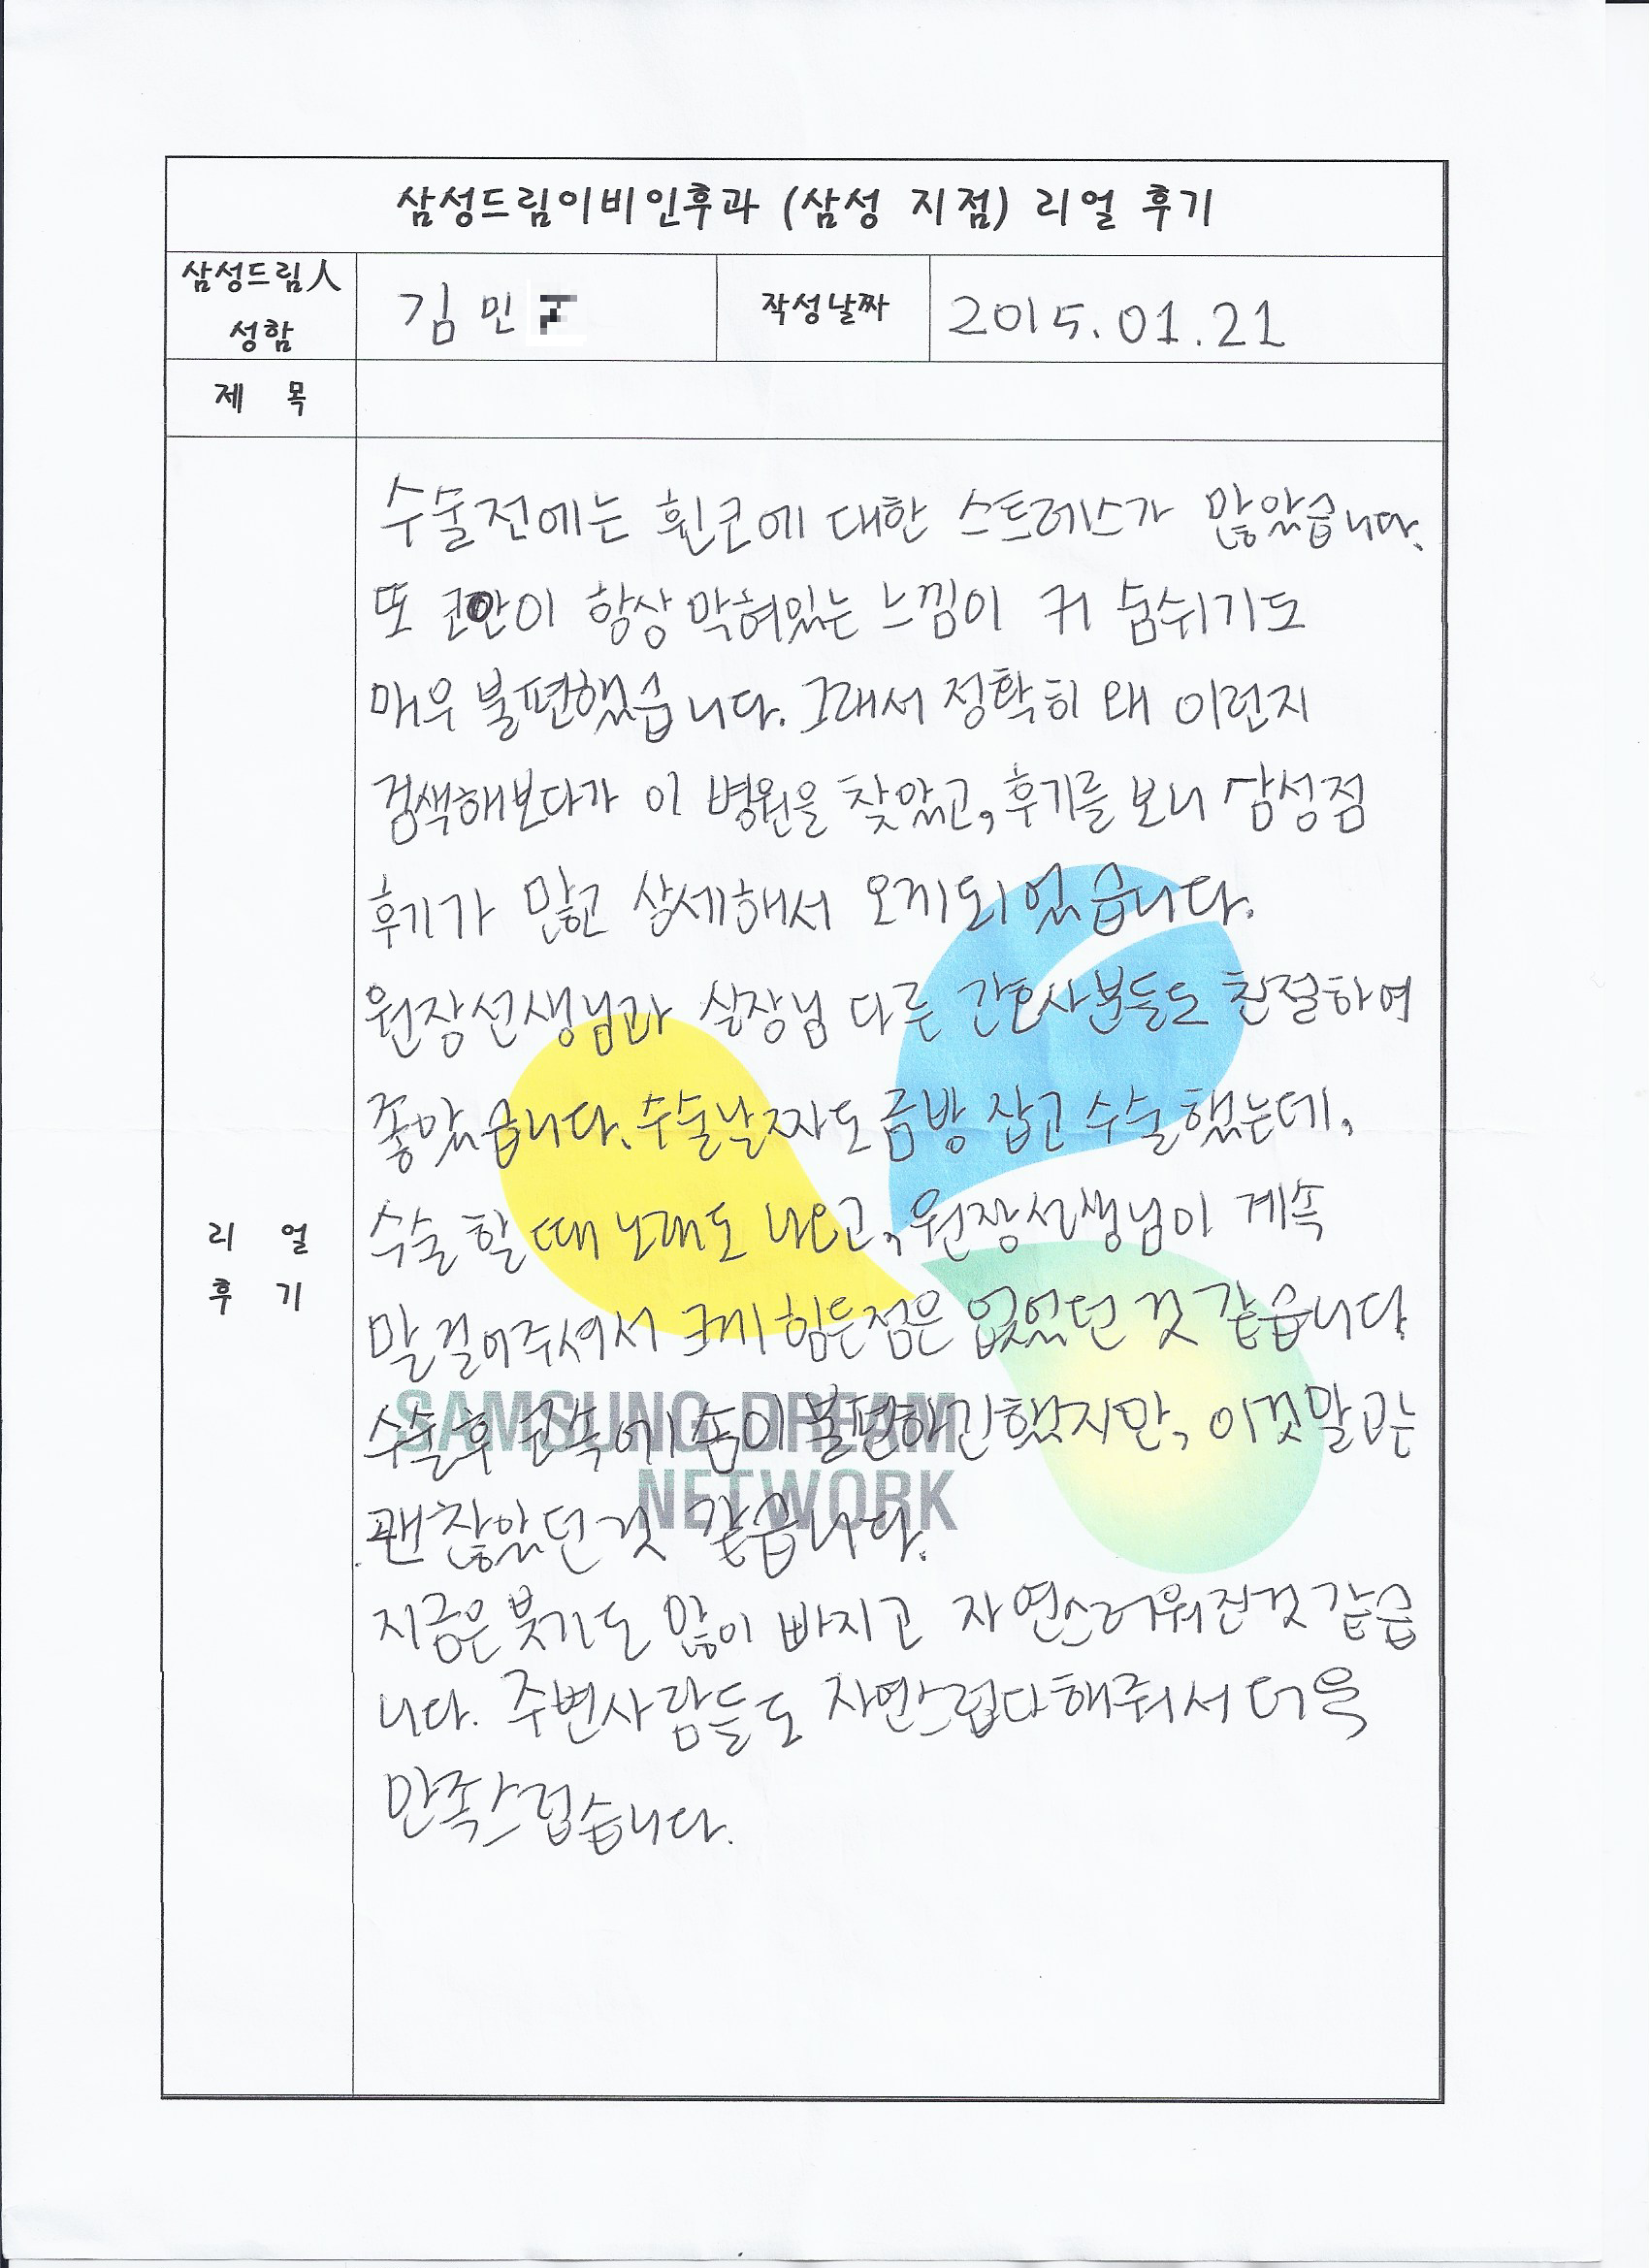 삼성드림이비인후과 (삼성 지점) 리얼 후기
삼성드림人
성함
김민
작성날짜
2015.01.21
제 목
리 얼
후 기
수술전에는 휜코에 대한 스트레스가 많았습니다.
또 코안이 항상 막혀있는 느낌이 커 숨쉬기도
매우 불편했습니다. 그래서 정확히 왜 이런지
검색해보다가 이 병원을 찾았고, 후기를 보니 삼성점
후기가 많고 상세해서 오게되었습니다.
원장선생님과 실장님 다른 간호사분들도 친절하여
좋았습니다. 수술날짜도 금방 잡고 수술했는데,
수술할때 노래도 나오고, 원장선생님이 계속
말걸어주셔서 크게 힘든점은 없었던 것 같습니다
수술후 코속에 솜이 불편하긴했지만, 이것말고는
괜찮았던것 같습니다.
지금은 붓기도 많이 빠지고 자연스러워진것 같습
니다. 주변사람들도 자연스럽다해줘서 더욱
만족스럽습니다.
SAMSUNG DREAM
NETWORK